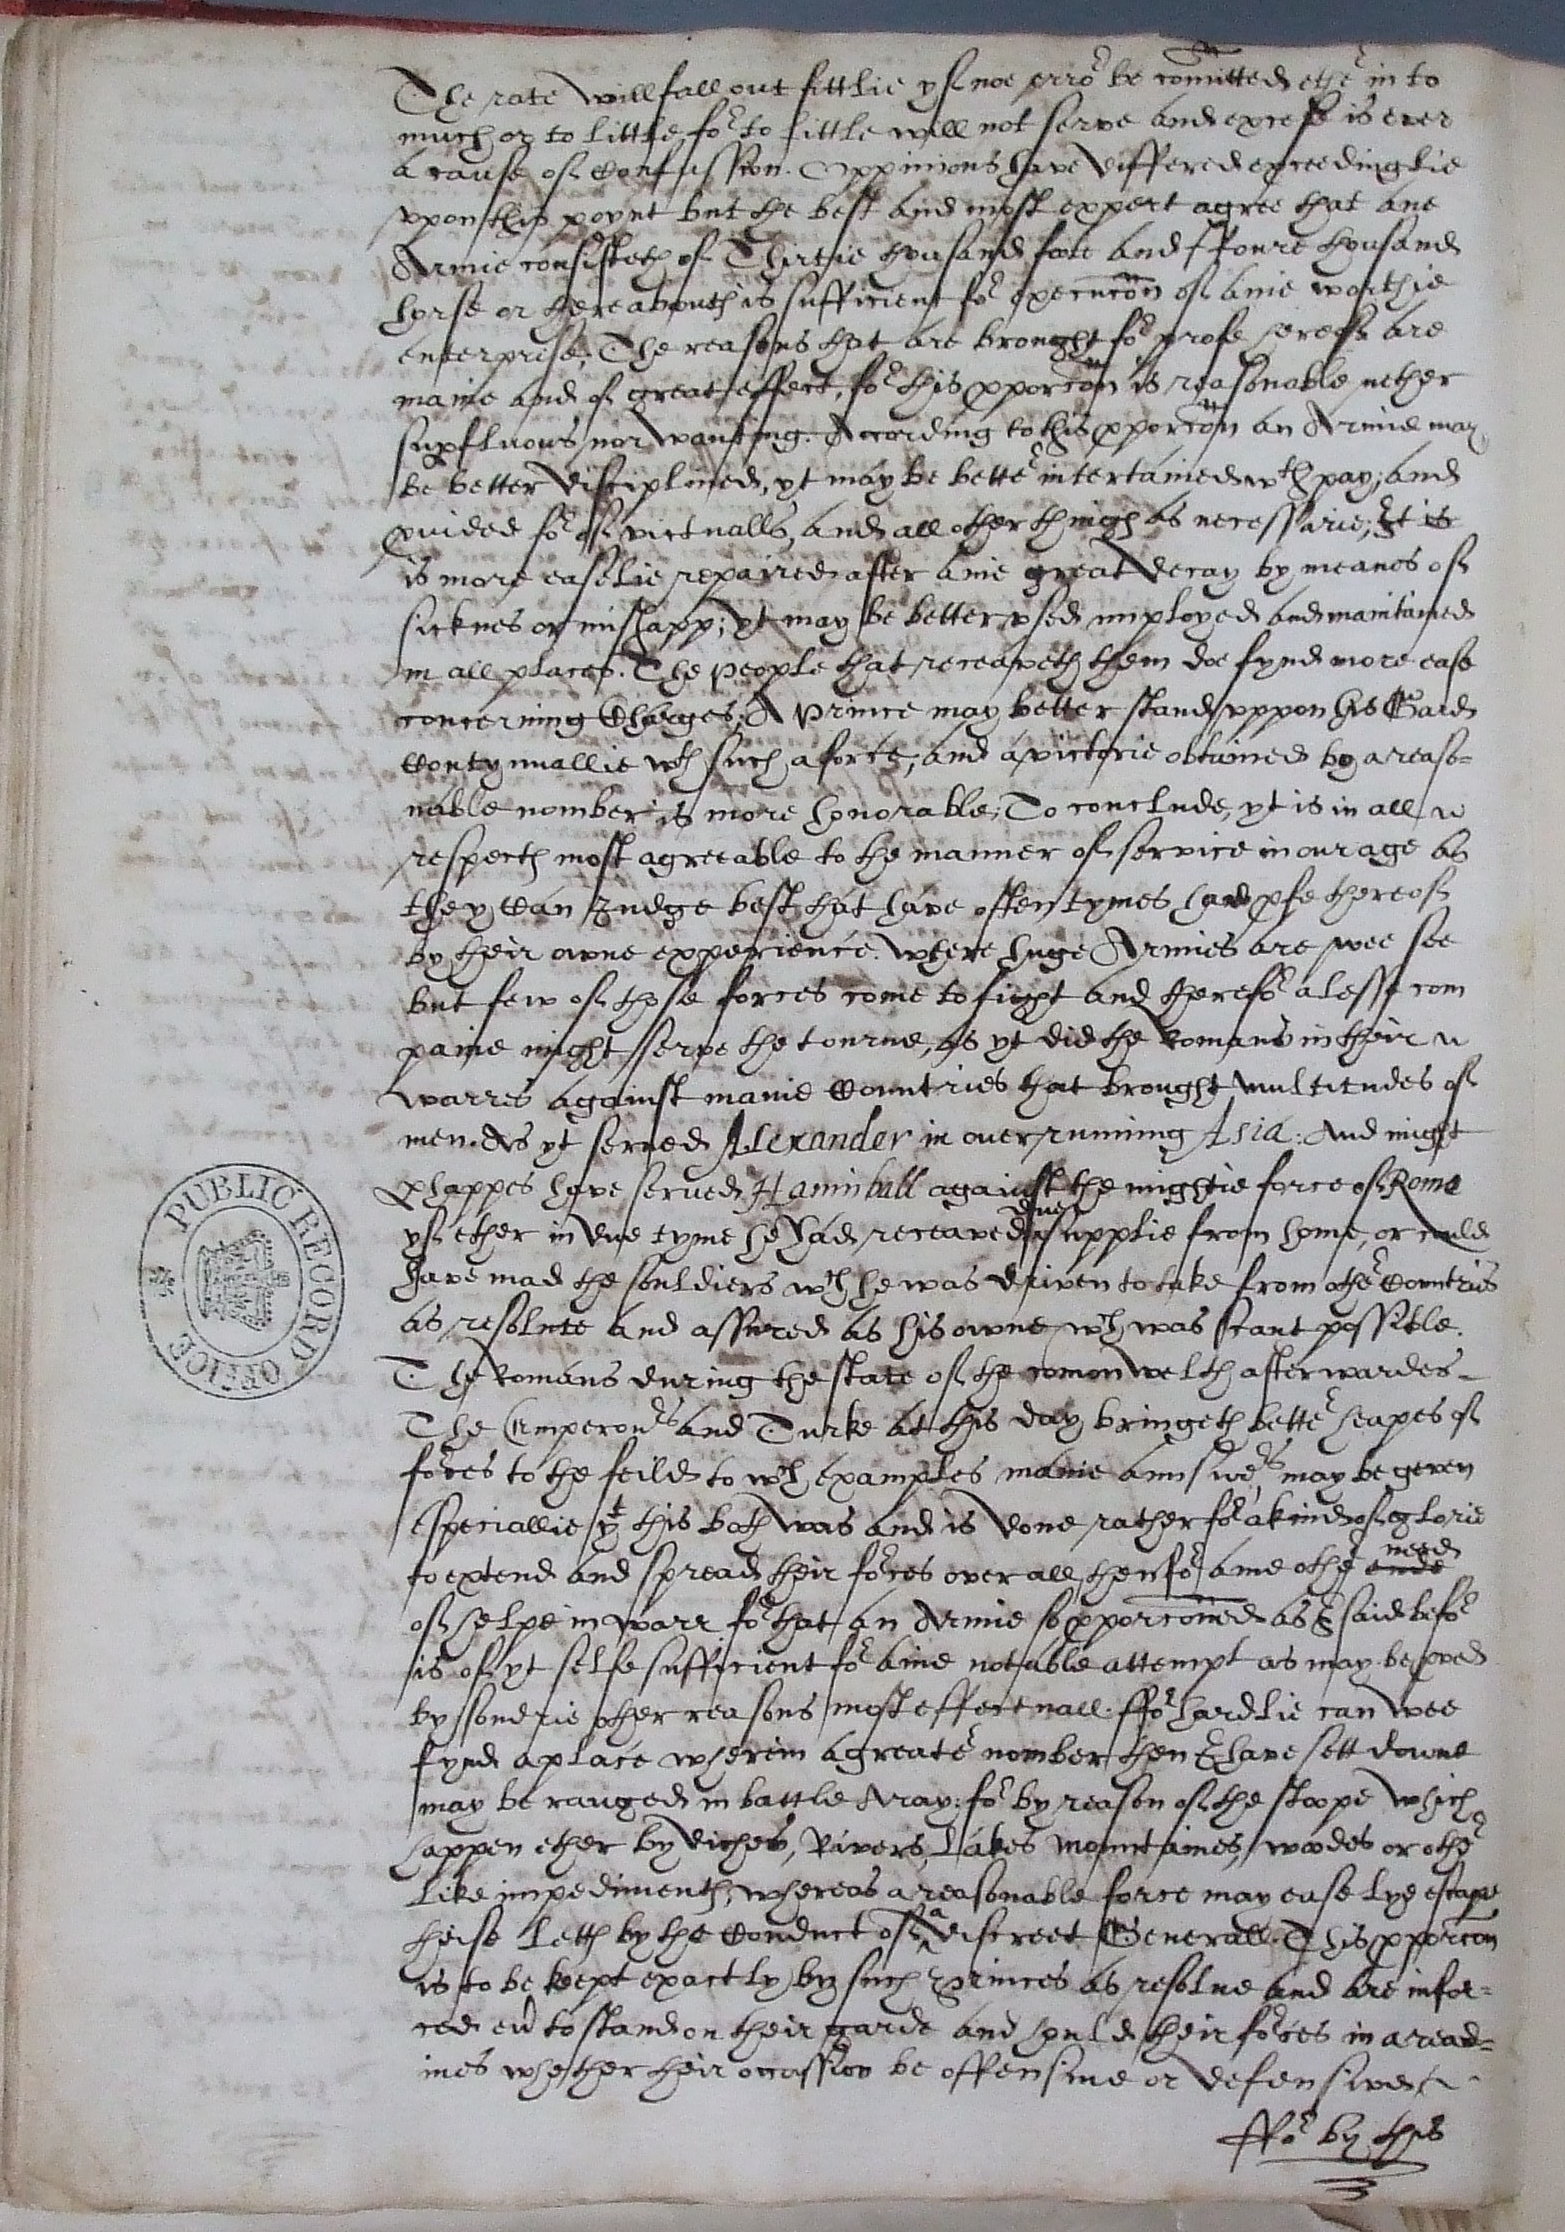 The rate will fall out fittlie yf noe erro^r be com̃itted ethe^r in to
much or to little fo^r to little will not serve and excesse is ever
a cause of Confussion. Oppinions have differed exceedinglie
vpon this poynt but the best and most expert agree that ane
Armie consisteth of Thirtie thousand foote and ffoure thousand
horse or thereabouth is sufficient fo^r execucõn of anie worthie
enterprise; The reasons that are brought fo^r profe hereof are
manie and of great effect, fo^r this ꝓporcõn is reasonable nether
supfluous nor wanting. According to this ꝓporcõn an Armie may
be better disciplined, yt may be bette^r intertained w^th pay; and
ꝓuided fo^r of victualls, and all other things as necessarie; yt is
is more easelie repaired after anie great decay by meanes of
sicknes or mishapp; yt may be better vsed imployed and maintained
in all places. The people that receaveth them doe fynd more ease
concerning Charges; A Prince may better stand vppon his Gard
Contynuallie w^th such a force; and a victorie obtained by a reaso=
nable nomber is more honorable; To conclude, yt is in all
respects most agreeable to the manner of service in our age as
they Can Judge best that have often tymes had pfe thereof
by their owne experience. Where huge Armies are wee see
but few of those forces come to fight and therefo^r a lesse com
panie might serve the tourne, as yt did the Romans in their
warres against manie Countries that brought multitudes of
men. As yt served Alexander in over running Asia: And might
ꝑhappes have served Hanniball against the mightie force of Rome
yf ether in due tyme he had receaved due supplie from home, or could
have mad the souldiers w^ch he was driven to take from othe^r Countries
as resolute and assured as his owne w^ch was scant possible.
The Romans during the state of the comon welth afterwardes
The Emperou^rs and Turke at this day bringeth bette^r heapes of
forces to the feild to w^ch examples manie answe^rs may be geven
especiallie y^t this both was and is done rather fo^r a kind of glorie
to extend and spread their forces over all then fo^r anie othe^r ende need
of helpe in warr fo^r that an Armie so ꝓporcõned as I said befo^r
is of yt selfe sufficient fo^r anie notable attempt as may be ꝓved
by sondrie other reasons most effectuall. ffo^r hardlie can wee
fynd a place wherein a greate^r nomber then I have sett downe
may be ranged in battle Aray: fo^r by reason of the stoope which
happen ether by diches, Rivers, Lakes Mountaines, woodes or othe^r
like impediments; whereas a reasonable force may easelye escape
theise letts by the Conduct of a discreet Generall. This ꝓporcõn
is to be kept exactly by such Princes as resolue and are infor=
ced eu^r to stand on their garde and hould their forces in a read=
ines whether their occassion be offensiue or defensive
ffo^r by this
PUBLIC RECORD OFFICE